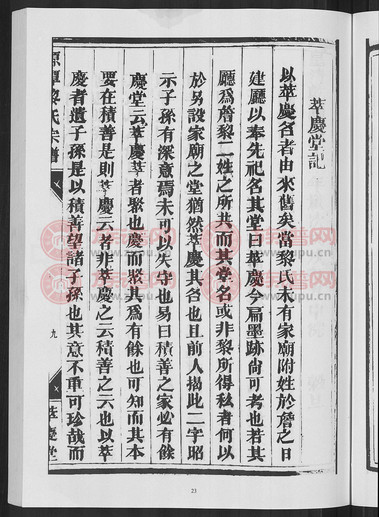 萃慶堂記
以萃慶名者由來舊矣當黎氏未有家廟附姓於詹之日
建廳以奉先祀名其堂曰萃慶今扁墨跡尙可考也若其
廳爲詹黎二姓之所共而其堂名或非黎所得私者何以
於另設家廟之堂猶然萃慶其名也且前人揭此二字昭
示子孫有深意焉未可以失守也易曰積善之家必有餘
慶堂云萃慶萃者聚也慶而聚其爲有餘也可知而其本
要在積善是則萃慶云者非萃慶之云積善之云也以萃
慶者遺子孫是以積善望諸子孫也其意不重可珍哉而
黎氏宗譜
九
萃慶堂
23
族譜網
zupu.cn